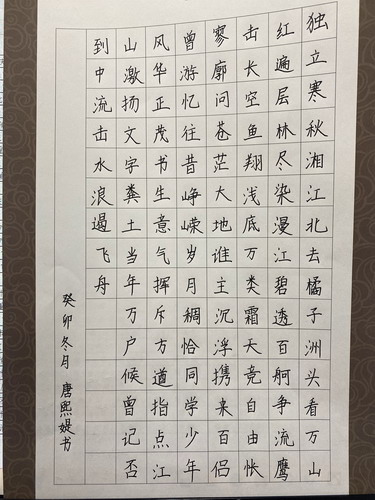 独立寒秋湘江北去橘子洲头看万山
红遍层林尽染漫江碧透百舸争流鹰
击长空鱼翔浅底万类霜天竞自由怅
寥廓问苍茫大地谁主沉浮携来百侣
曾游忆往昔峥嵘岁月稠恰同学少年
风华正茂书生意气挥斥方遒指点江
山激扬文字粪土当年万户候曾记否
到中流击水浪遏飞舟
癸卯冬月 唐熙媞书